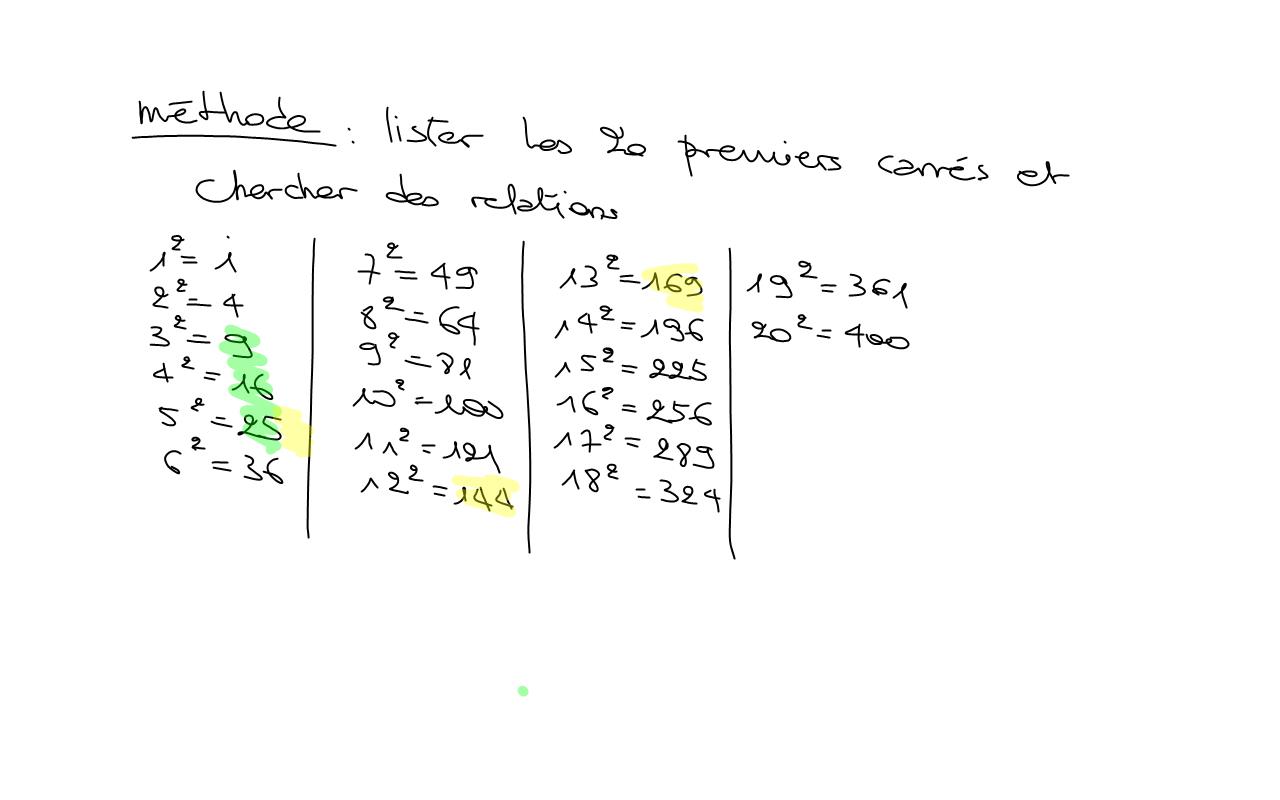 méthode : lister les 20 premiers carrés et
chercher des relations
1² = 1
2² = 4
3² = 9
4² = 16
5² = 25
6² = 36
7² = 49
8² = 64
9² = 81
10² = 100
11² = 121
12² = 144
13² = 169
14² = 196
15² = 225
16² = 256
17² = 289
18² = 324
19² = 361
20² = 400